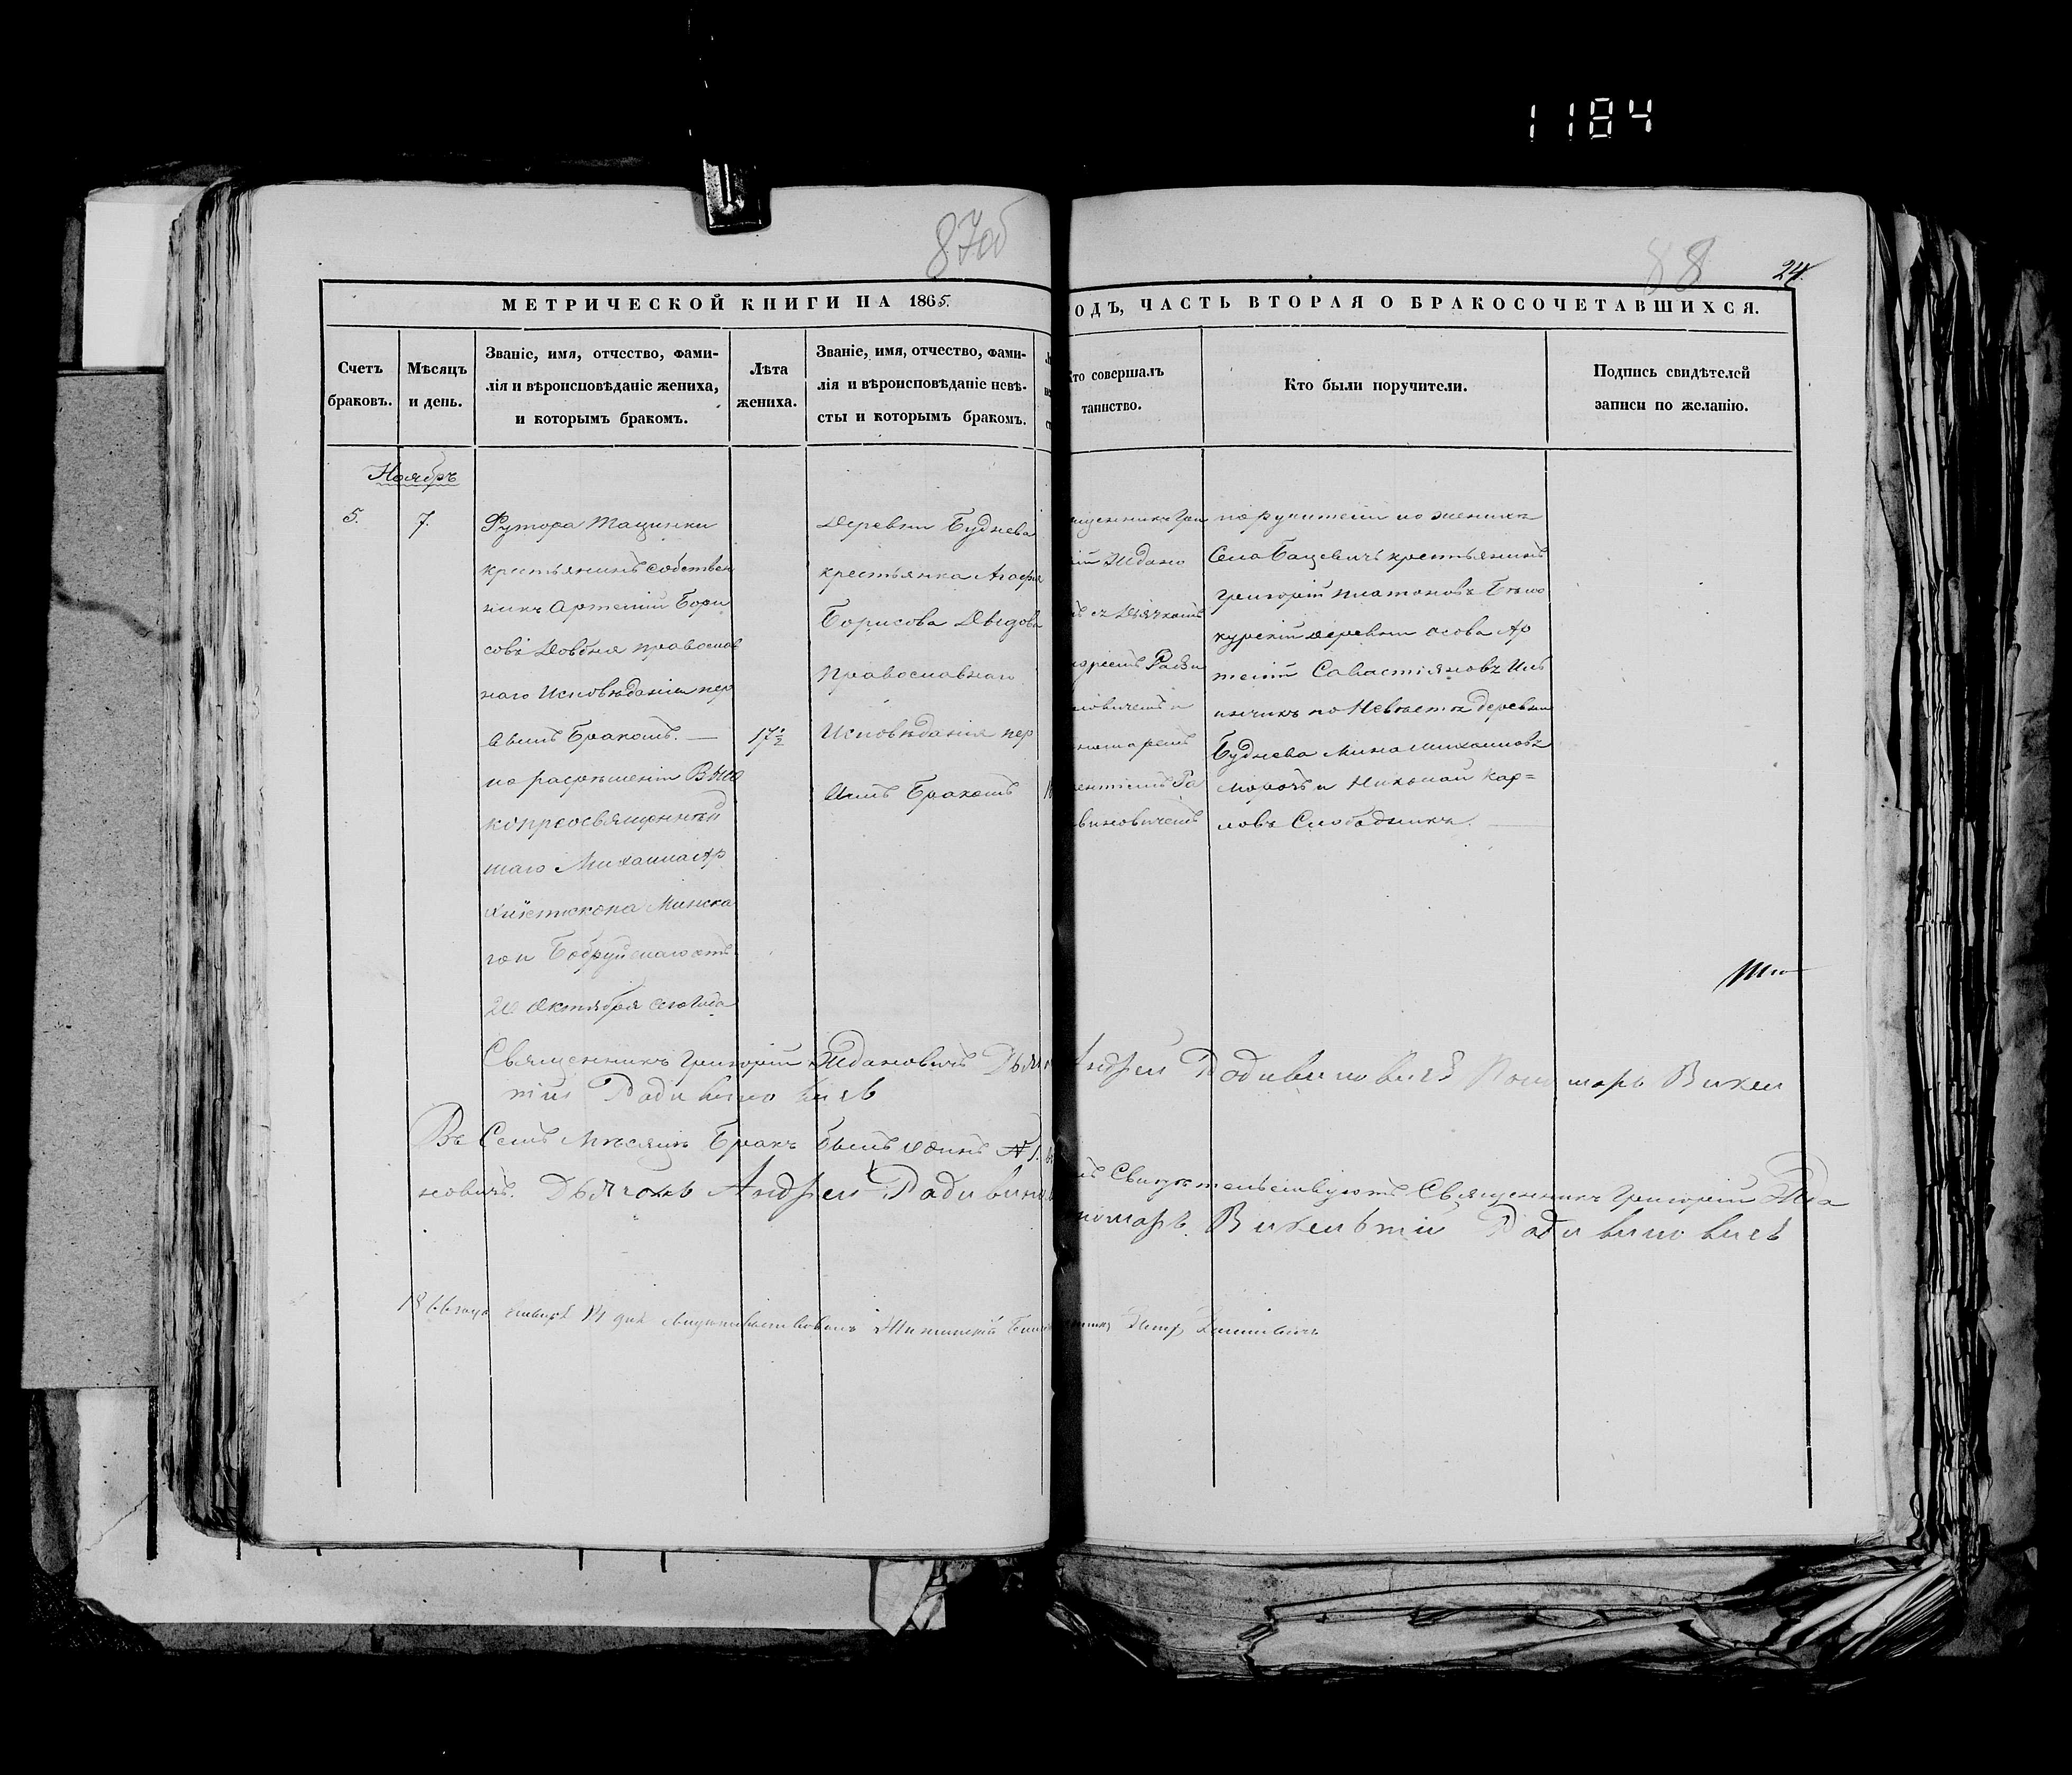 1184
87об
88
24.
МЕТРИЧЕСКОЙ КНИГИ НА 1865.
ОДЪ, ЧАСТЬ ВТОРАЯ О БРАКОСОЧЕТАВШИХСЯ.
Счетъ
браковъ.
Мѣсяцъ
и день.
Званіе, имя, отчество, фами-
лія и вѣроисповѣданіе жениха,
и которымъ бракомъ.
Лѣта
жениха.
Званіе, имя, отчество, фами-
лія и вѣроисповѣданіе невѣ-
сты и которымъ бракомъ.
то совершалъ
таинство.
Кто были поручители.
Подпись свидѣтелей
записи по желанію.
Ноябрь
5.
7.
Футора Тащинки
крестьянинъ собствен
никъ Артемій Бори
совъ Довбня православ
наго Исповѣданія пер
вымъ Бракомъ. —
по разрѣшенію Высо
копреосвященнѣй
шаго Михаила Ар
хіепископа Минска
го и Бобруйскаго отъ
20 Октября сего Года
17½
Деревни Буднева
крестьянка Агафія
Борисова Дыдова
Православнаго
Исповѣданія пер
вымъ Бракомъ
ященникъ Гри
ій Ждано
ъ съ Дьячкомъ
дреемъ Ради
новичемъ и
номаремъ
ентіемъ Ра
виновичемъ
поручители по женихѣ
Села Бацевичъ крестьянинъ
Григорій Платоновъ Бѣло
курскій деревни Осова Ар
темій Савастіяновъ Иль
инчикъ по Невѣстѣ деревни
Буднева Мина Михаиловъ
Морозъ и Николай Кар=
ловъ Слободникъ. —
Священникъ Григорій Ждановичъ Дьяч
Андрей Радивиновичъ Пономарь Викен
тій Радивиновичъ
Въ Семъ Мѣсяцѣ Бракъ былъ одинъ № 1.
ъ Свидѣтельствуютъ Священникъ Григорій Жда
новичъ. Дьячокъ Андрей Радивино
номарь Викентій Радивиновичъ
1866 года января 14 дня свидѣтельствовалъ